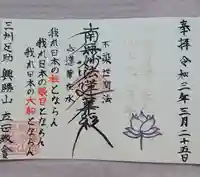 奉拝 令和三年三月二十五日
不染世間法
如蓮華在水
南無妙法蓮華経
我れ日本の柱とならん
我れ日本の眼目とならん
我れ日本の大船とならん
三州足助 興勝山